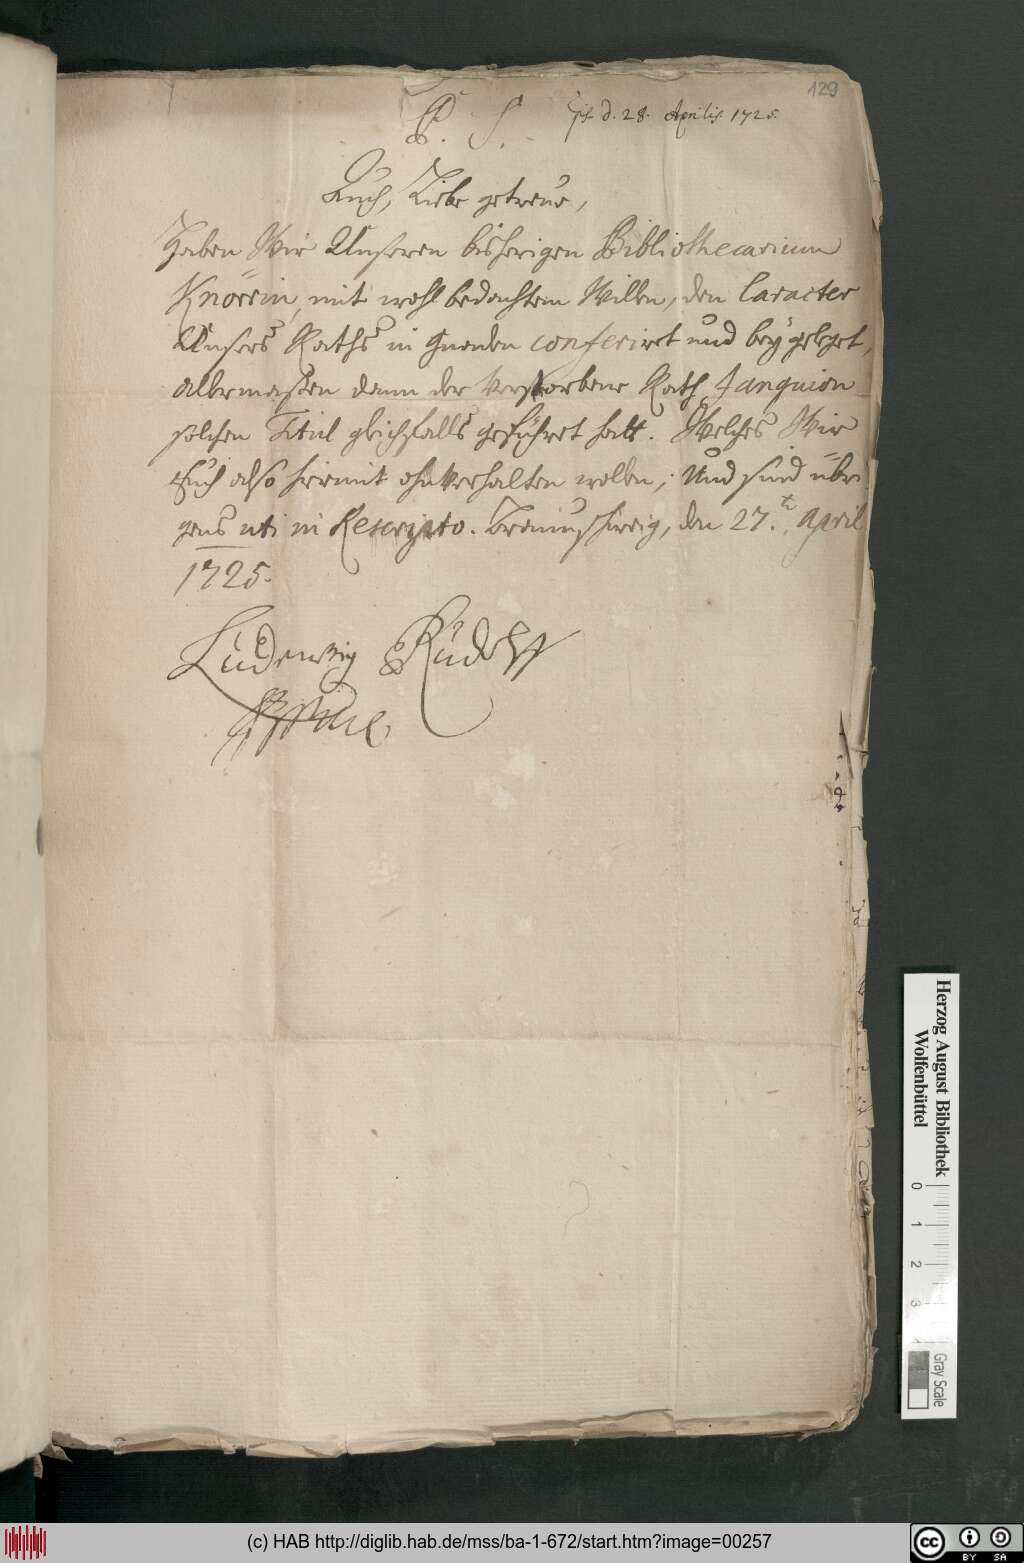 129
P. S.
d. 28. Aprilis 1725.
Auch, Liebe getreue,
Haben Wir Unseren bisherigen Bibliothecarium
Knorrin, mit wohl bedachtem Willen, den Caracter
Unsers Raths in Gnaden conferiret und beygeleget,
allermaßen dann der verstorbene Rath Janquion
solchen Titul gleichfalls geführet hatt. Welches Wir
Euch also hiermit ohnverhalten wollen; Und sind übri
gens uti in Rescripto. Braunschweig, den 27.t April
1725.
Ludewig Rudolph
Herzog August Bibliothek
Wolfenbüttel
0 1 2 3
Gray Scale
(c) HAB http://diglib.hab.de/mss/ba-1-672/start.htm?image=00257
cc BY SA